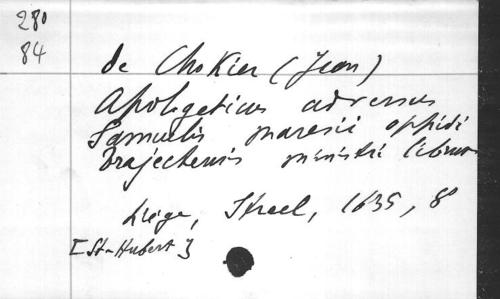 280
84
de Chokier (Jean)
Apologeticus adversus
Samuelis maresii oppidi
Trajectensis ministri librum
Liège, Streel, 1635, 8°
[St-Hubert]